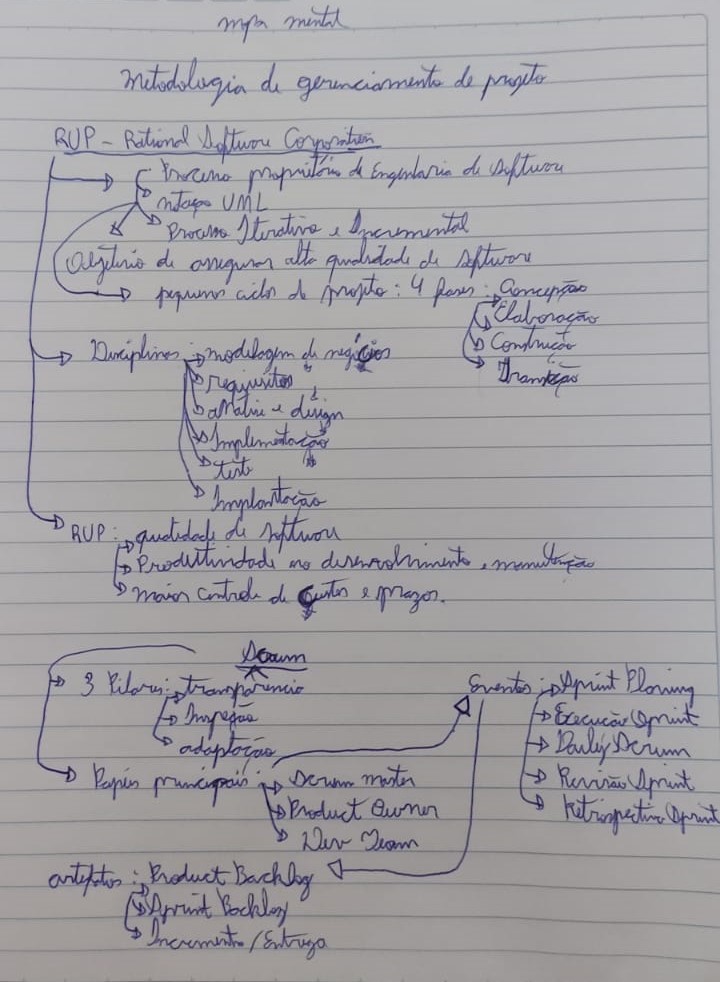 mpa mental
Metodologia de gerenciamento de projeto
RUP - Rational Software Corporation
Processo proprietário de Engenharia de Software
notação UML
Processo Iterativo e Incremental
Objetivo de assegurar alta qualidade de software
pequenos ciclos de projeto : 4 fases : Concepção
Elaboração
Construção
Transição
Disciplinas : modelagem de negócios
requisitos
análise e design
Implementação
teste
Implantação
RUP : qualidade de software
Produtividade no desenvolvimento e manutenção
maior controle de custos e prazos.
Scrum
3 Pilares : transparencia
Inspeção
adaptação
Papéis principais : Scrum master
Product Owner
Dev Team
Eventos : Sprint Planing
Execução Sprint
Daily Scrum
Revisão Sprint
Retrospectiva Sprint
artefatos : Product Backlog
Sprint Backlog
Incremento / Entrega